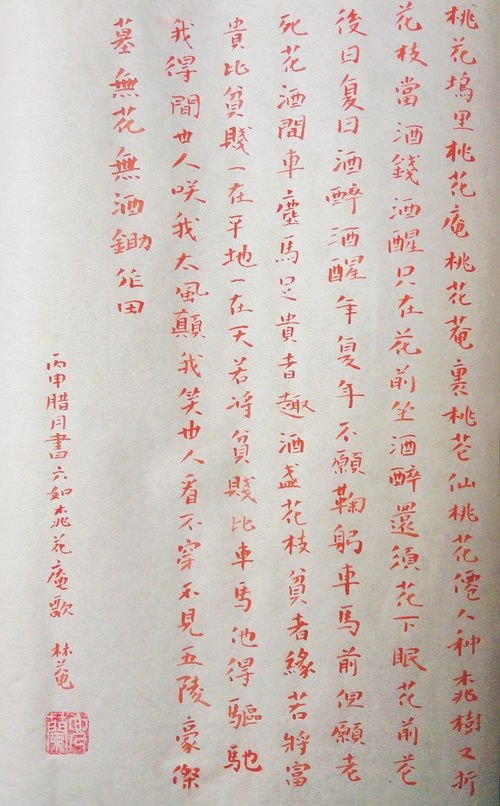 桃花塢里桃花庵桃花菴裏桃花仙桃花僊人种桃樹又折
花枝當酒錢酒醒只在花前坐酒醉還須花下眠花前花
後日复日酒醉酒醒年复年不願鞠躬車馬前但願老
死花酒間車塵馬足貴者趣酒盞花枝貧者緣若將富
貴比貧賤一在平地一在天若将貧賤比車馬他得驅馳
我得間世人咲我太風顛我笑世人看不穿不見五陵豪傑
墓無花無酒鋤作田
丙申腊月書六如桃花庵歌 林菴